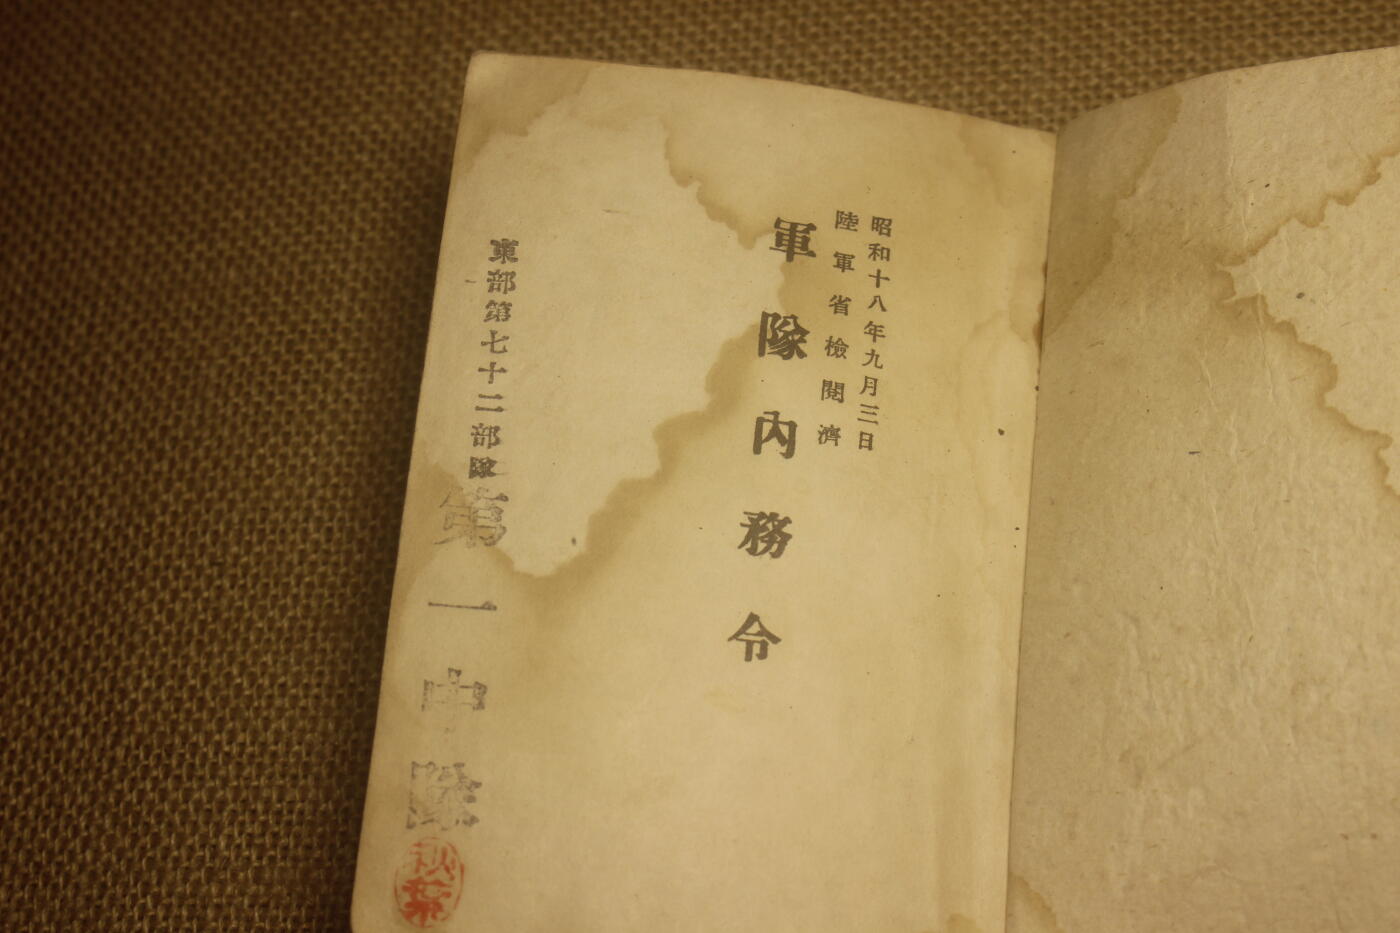 昭和十八年九月三日
陸軍省檢閱濟
軍隊內務令
東部第七十二部隊
第一中隊
秋葉